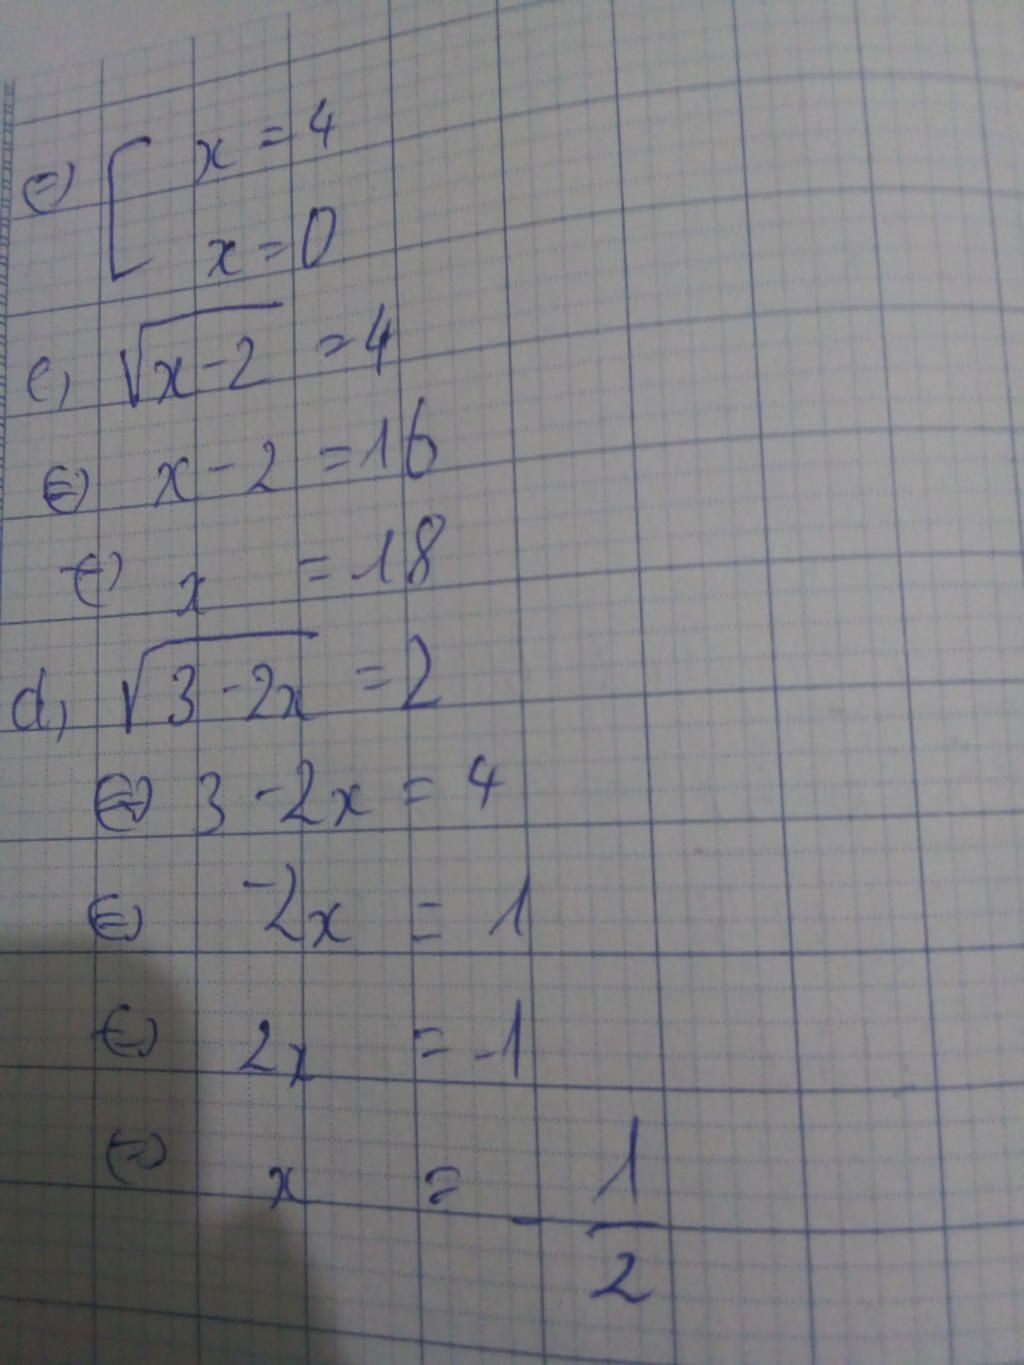 ⇔ [ x = 4
x = 0
c, √(x - 2) = 4
⇔ x - 2 = 16
⇔ x = 18
d, √(3 - 2x) = 2
⇔ 3 - 2x = 4
⇔ -2x = 1
⇔ 2x = -1
⇔ x = - 1/2